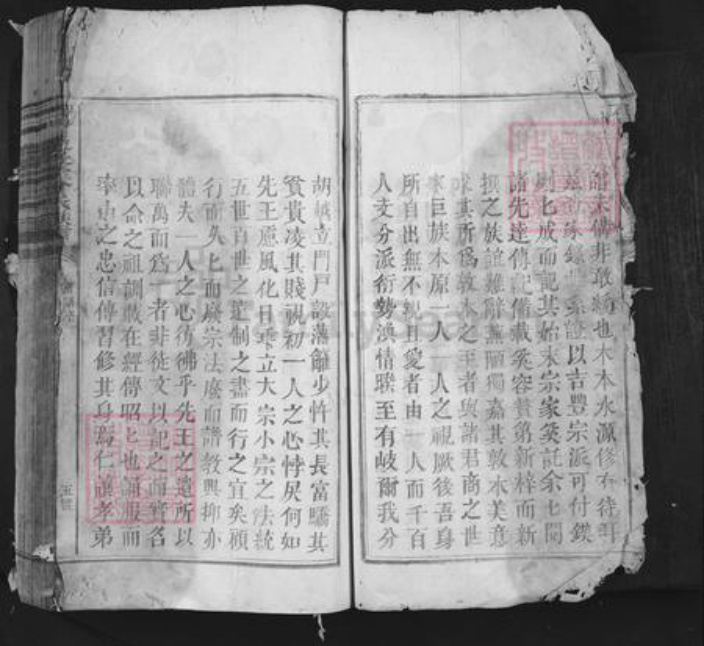 譜末備非敢續也木本水源修有待
錄 系證以吉豐宗派可付鋟
刻匕成而記其始末宗家奚託余匕閱
諸先達傳記備載奚容贅第新梓而新
撰之族誼難辭蕪陋獨嘉其敦本美意
求其所為敦本之王者與諸君商之世
家巨族本原一人一人之視厥後吾身
所自出無不親且愛者由一人而千百
人支分派衍勢渙情聯至有岐爾我分
胡越立門戶設藩籬少忤其長富驕其
貧貴凌其賤視初一人之心悖戾何如
先王慮風化日乖立大宗小宗之法統
五世百世之遠制之盡而行之宜矣顧
行而久匕而廢宗法廢而譜教興抑亦
體夫一人之心彷彿乎先王之遺所以
聯萬而為一者非徒文以記之而實名
以命之祖訓載在經傳昭匕也誦服而
率由之忠信傳習修其身焉仁讓孝弟